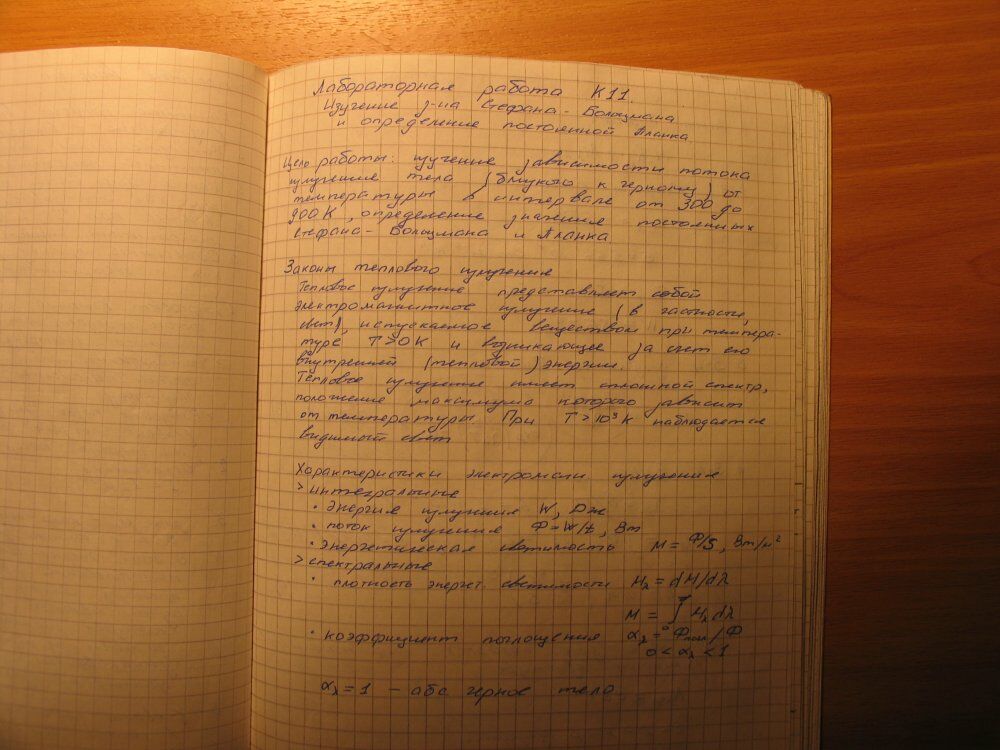 Лабораторная работа К11.
Изучение з-на Стефана - Больцмана
и определение постоянной Планка.
Цель работы: изучение зависимости потока
излучения тела (близкого к черному) от
температуры в интервале от 300 до
900 К, определение значения постоянных
Стефана - Больцмана и Планка
Законы теплового излучения
Тепловое излучение представляет собой
электромагнитное излучение (в частности,
свет), испускаемое веществом при темпера-
туре T>0 К и возникающее за счет его
внутренней (тепловой) энергии.
Тепловое излучение имеет сплошной спектр,
положение максимума которого зависит
от температуры. При T > 10³ К наблюдается
видимый свет
Характеристики электромагн. излучения
> интегральные
• энергия излучения W, Дж
• поток излучения Ф = W/t, Вт
• энергетическая светимость M = Ф/S, Вт/м²
> спектральные
• плотность энергет. светимости M_λ = dM/dλ
M = ∫₀^∞ M_λ dλ
• коэффициент поглощения α_λ = Ф_погл / Ф
0 < α_λ < 1
α_λ = 1 – абс черное тело.